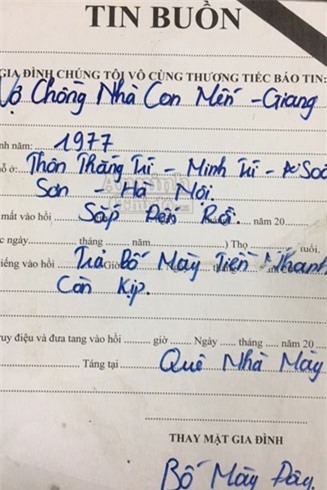 TIN BUỒN
GIA ĐÌNH CHÚNG TÔI VÔ CÙNG THƯƠNG TIẾC BÁO TIN:
Vợ Chồng Nhà Con Mến - Giang
nh năm: 1977
ỗ ở: Thôn Thắng Trí - Minh Trí - Soc
Sơn - Hà Nội
mất vào hồi Sắp Đến Rồi. năm 20
c ngày tháng năm ) Thọ tuổi.
iếng vào hồi Giờ Trả Bố Mày Tiền Nhanh
Còn Kịp.
uy điệu và đưa tang vào hồi giờ Ngày tháng năm 20
Táng tại Quê Nhà Mày
THAY MẶT GIA ĐÌNH
Bố Mày Đây.